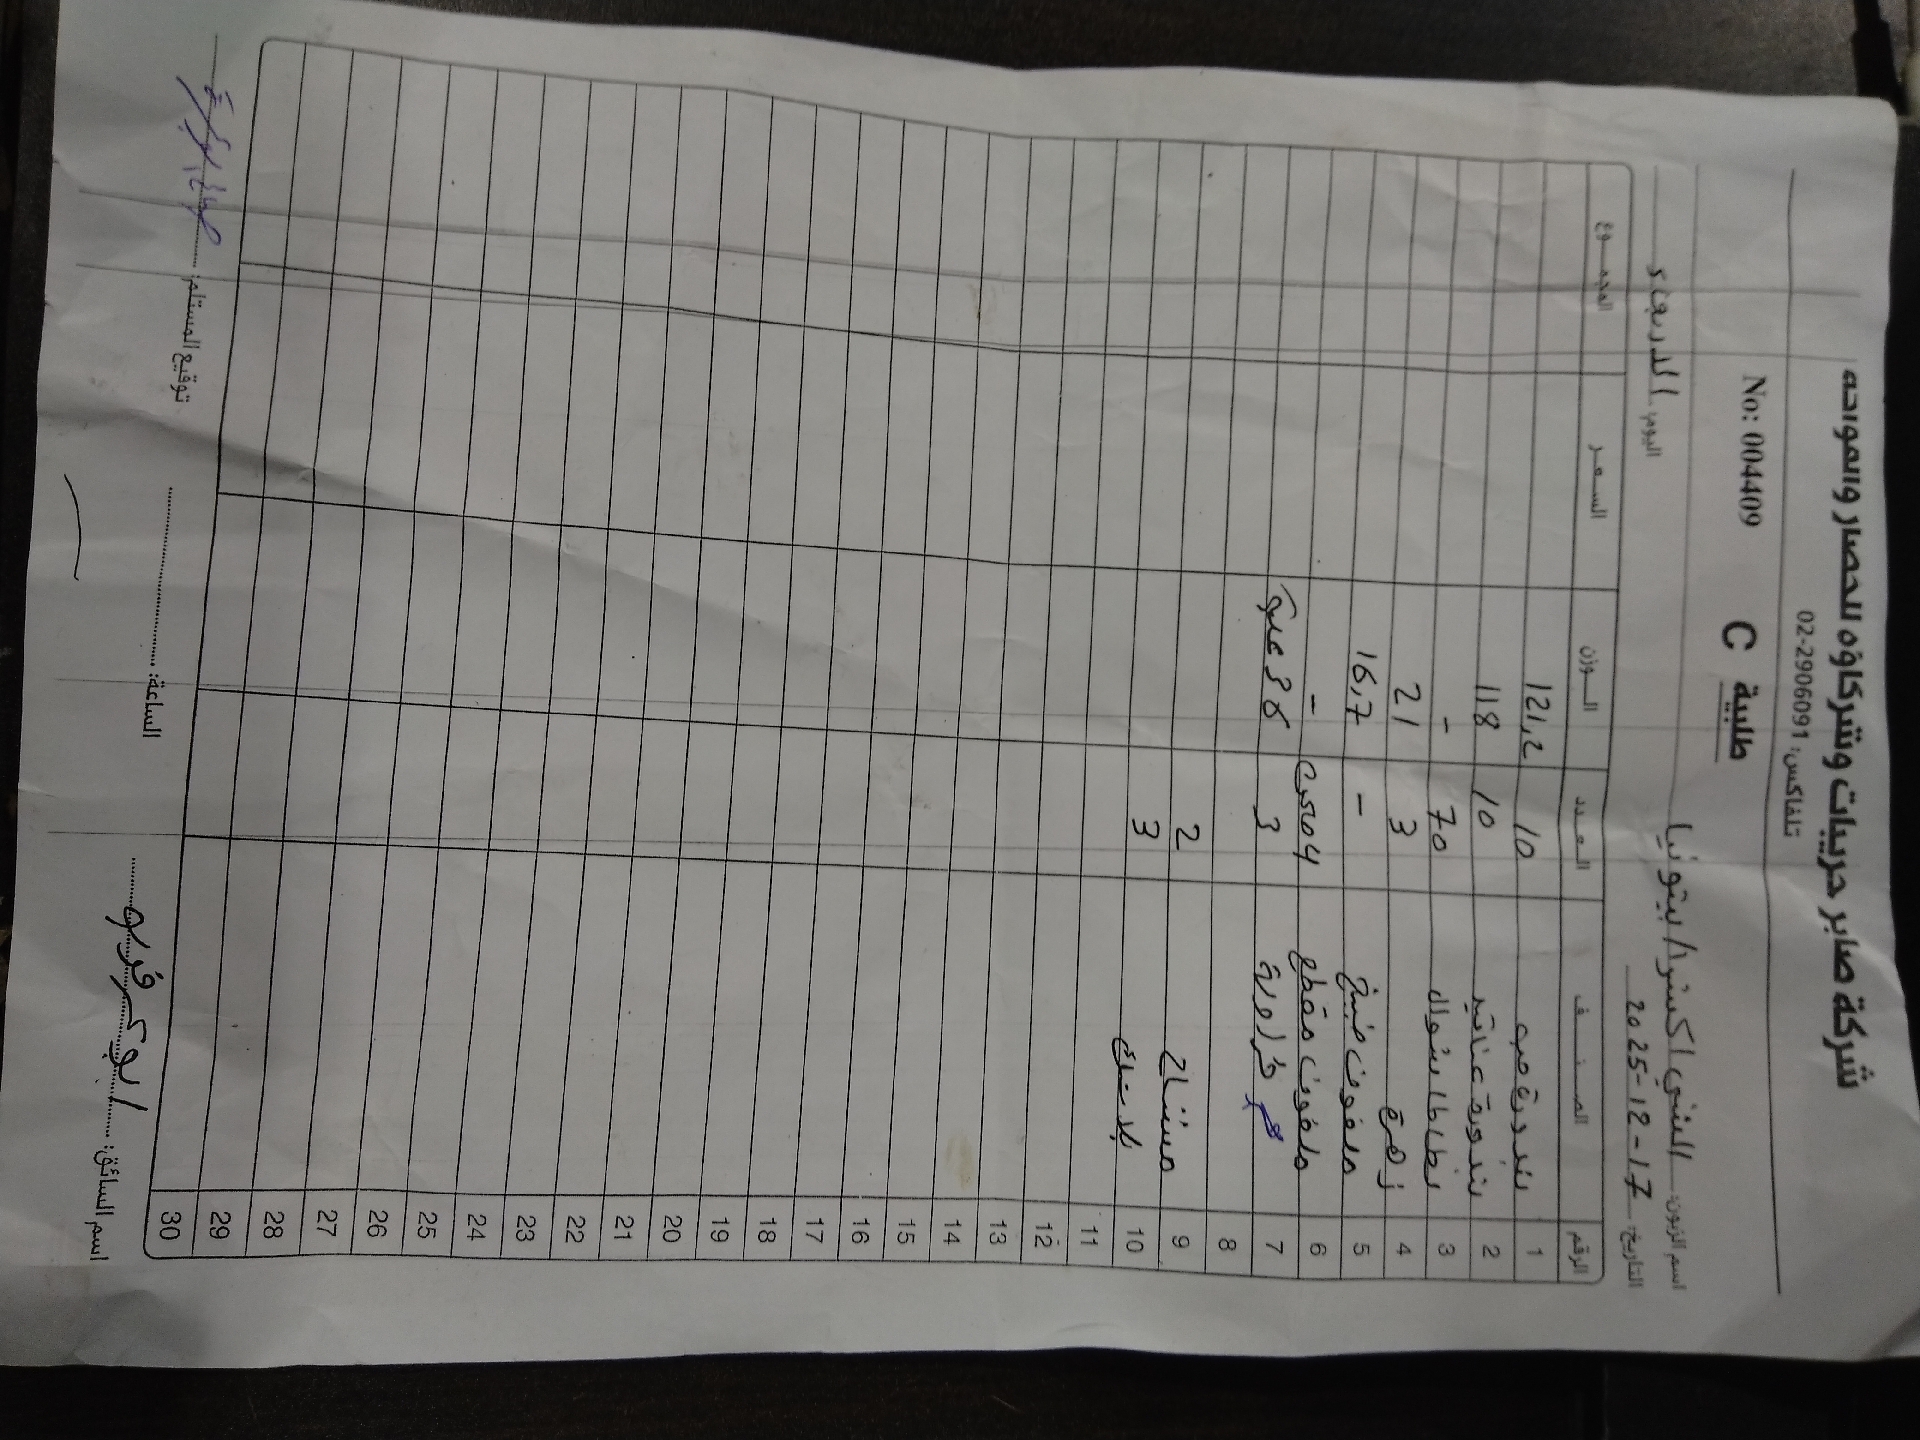 شركة صابر حربيات وشركاؤه للخضار والفواكه
تلفاكس: 02-2906091
طلبية C No: 004409
اسم الزبون: المنى اكسترا / بيتونيا
التاريخ: 2025-12-17 اليوم: الاربعاء
الرقم الصنف العدد الوزن السعر المجموع
1 بندورة 10 121,2
2 بندورة عناقيد 10 118
3 بطاطا شوال 70 -
4 زهرة 3 21
5 ملفوف - 16,7
6 ملفوف مقطع 4 -
7 فراولة 3 38 علبة
8
9 مشتاح 2
10 بلاستك 3
11
12
13
14
15
16
17
18
19
20
21
22
23
24
25
26
27
28
29
30
اسم السائق: ابو الساعة: توقيع المستلم: